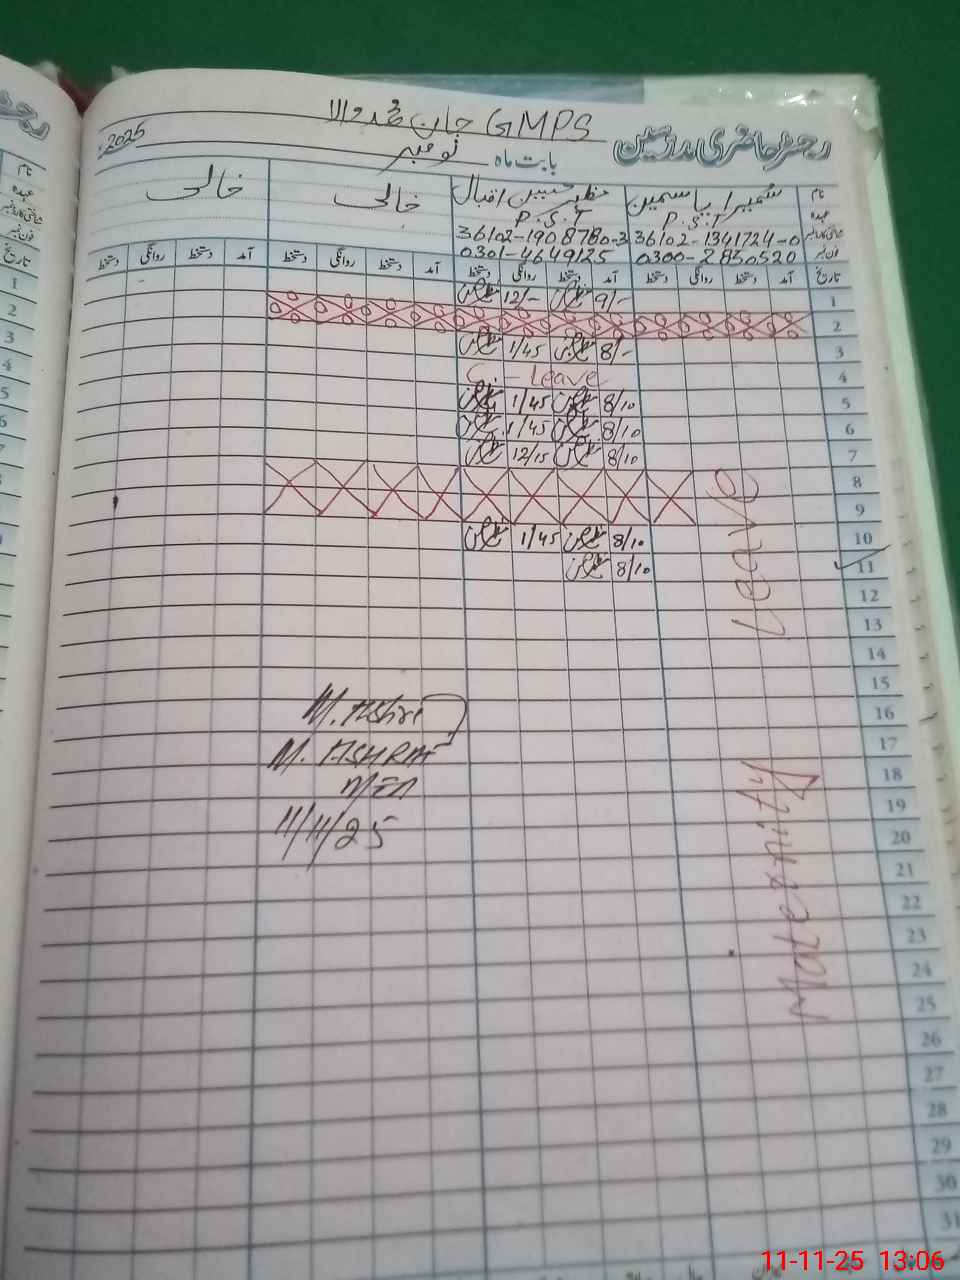 GMPS جان محمد والا
رجسٹر حاضری مدرسین
بابت ماہ نومبر 2025
نام سمیرا یاسمین اقبال خالی خالی
عہدہ P.S.T P.S.T
36102-1341724-0 36102-1908780-3
فون نمبر 0300-2850520 0301-4649125
تاریخ آمد دستخط روانگی دستخط آمد دستخط روانگی دستخط آمد دستخط روانگی دستخط آمد دستخط روانگی دستخط
1 9/- 12/-
2
3 8/- 1/45
4 C. - Leave
5 8/10 1/45
6 8/10 1/45
7 8/10 12/15
8
9
10 8/10 1/45
11 8/10
12
13
14
15
16
17
18
19
20
21
22
23
24
25
26
27
28
29
30
31
Maternity Leave
M. ASHRAF
11/11/25
11-11-25 13:06